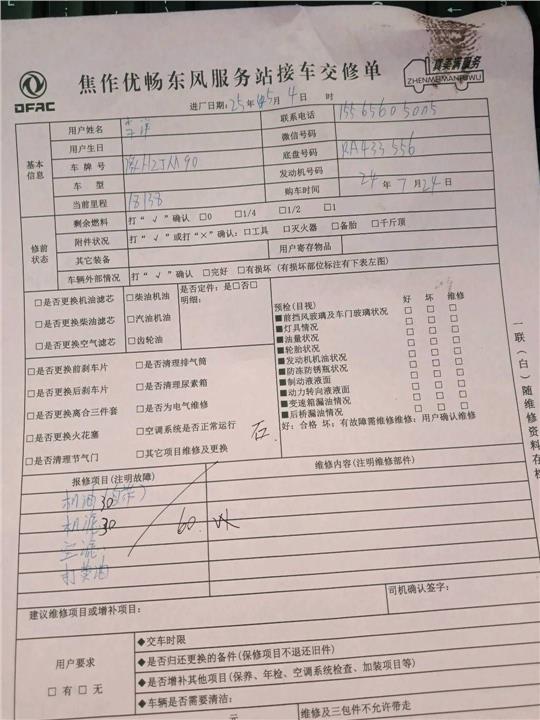 DFAC
焦作优畅东风服务站接车交修单
真美满服务
ZHENMEIMANFUWU
进厂日期: 25年 5月 4日 时
基本信息
用户姓名
联系电话 15565605005
用户生日
微信号码
车牌号
底盘号码 RA433556
车型
发动机号码
当前里程 18138
购车时间 24年 7月 24日
修前状态
剩余燃料 打“√”确认 □0 □1/4 □1/2 □1
附件状况 打“√”或打“×”确认: □工具 □灭火器 □备胎 □千斤顶
其它装备 用户寄存物品
车辆外部情况 打“√”确认 □完好 □有损坏 (有损坏部位标注有下表左图)
□是否更换机油滤芯 □柴油机油 是否定件: 是□否□
明细:
□是否更换柴油滤芯 □汽油机油
□是否更换空气滤芯 □齿轮油
预检(目视) 好 坏 维修
■前挡风玻璃及车门玻璃状况 □ □ □
■灯具情况 □ □ □
■油量状况 □ □ □
■轮胎状况 □ □ □
■发动机机油状况 □ □ □
■防冻防锈瓶状况 □ □ □
■制动液液面 □ □ □
■动力转向液液面 □ □ □
■变速箱漏油情况 □ □ □
■后桥漏油情况 □ □ □
好: 合格 坏: 有故障需维修维修: 用户确认维修
□是否更换前刹车片 □是否清理排气筒
□是否更换后刹车片 □是否清理尿素箱
□是否更换离合三件套 □是否为电气维修
□是否更换火花塞 □空调系统是否正常运行
□是否清理节气门 □其它项目维修及更换
石.
一联(白)随维修资料存档
报修项目(注明故障) 维修内容(注明维修部件)
机油30
机滤30 60
空滤
打柴油
建议维修项目或增补项目:
司机确认签字:
用户要求
□有□无
◆交车时限
◆是否归还更换的备件(保修项目不退还旧件)
◆是否增补其他项目(保养、年检、空调系统检查、加装项目等)
◆车辆是否需要清洁:
元
维修及三包件不允许带走